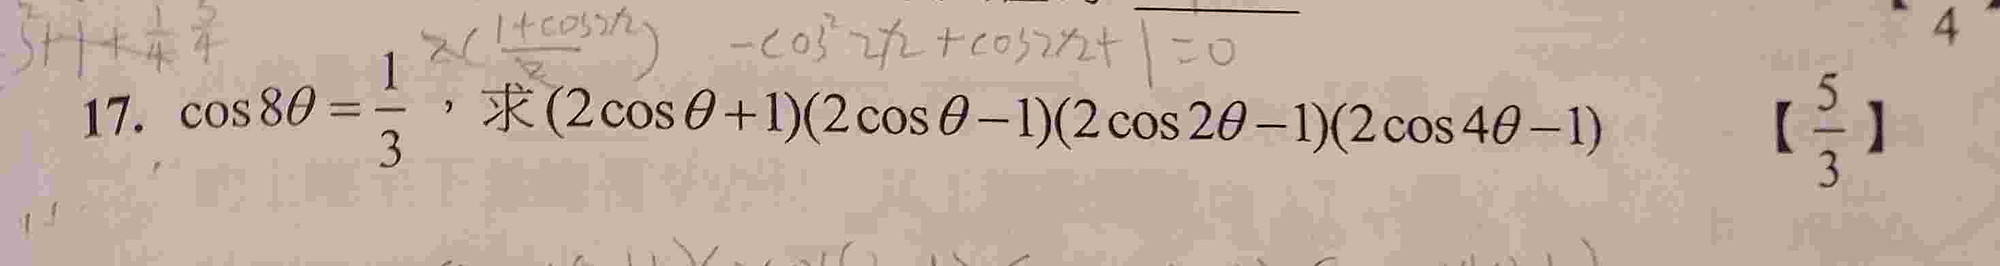 + 1/4 3/4 2(1+cos2x/2) -cos²2x + cos2x + 1 = 0 4
17. cos8θ = 1/3 ，求(2cosθ+1)(2cosθ−1)(2cos2θ−1)(2cos4θ−1) 【5/3】